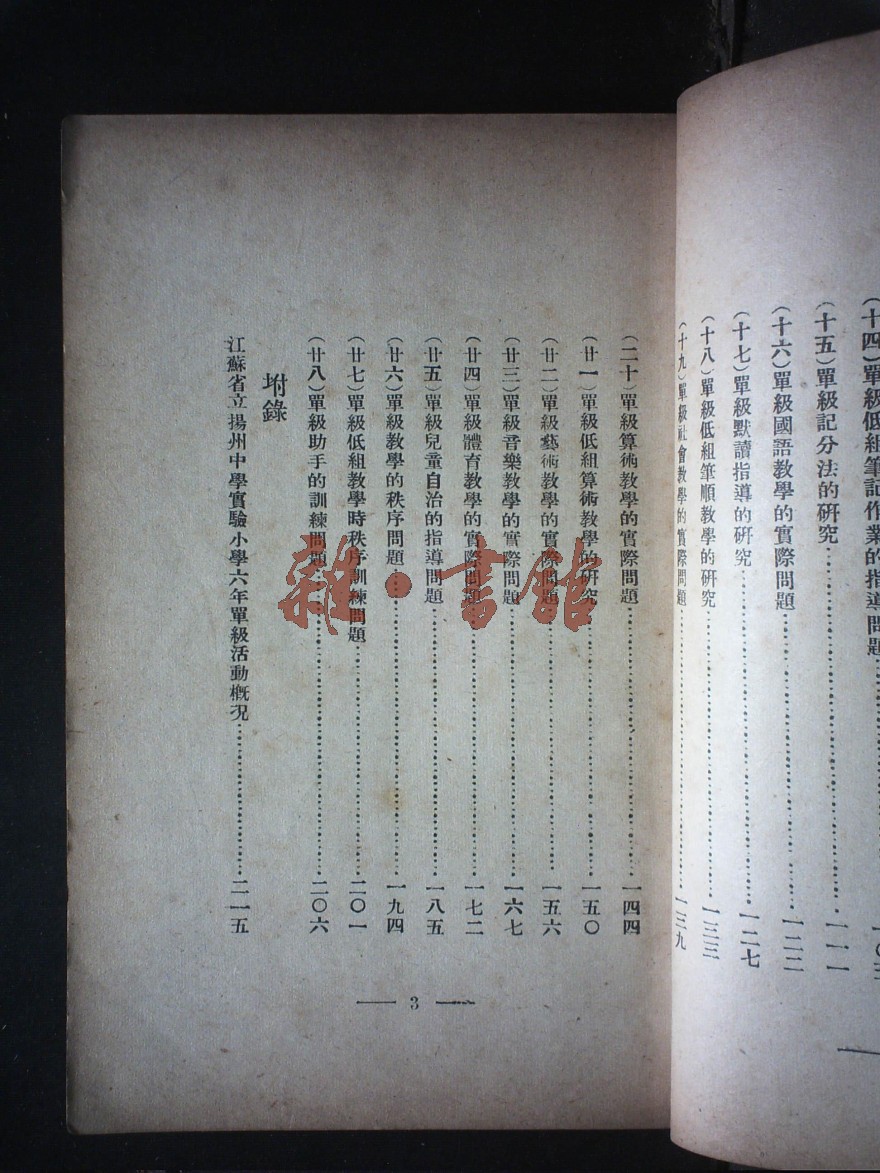 (十四)單級低組筆記作業的指導問題
(十五)單級記分法的研究…………一一一
(十六)單級國語教學的實際問題…………一二二
(十七)單級默讀指導的研究…………一二七
(十八)單級低組筆順教學的研究…………一三三
(十九)單級社會教學的實際問題…………一三九
(二十)單級算術教學的實際問題…………一四四
(廿一)單級低組算術教學的研究…………一五〇
(廿二)單級藝術教學的實際問題…………一五六
(廿三)單級音樂教學的實際問題…………一六七
(廿四)單級體育教學的實際問題…………一七二
(廿五)單級兒童自治的指導問題…………一八五
(廿六)單級教學的秩序問題…………一九四
(廿七)單級低組教學時秩序訓練問題…………二〇一
(廿八)單級助手的訓練問題…………二〇六
坿錄
江蘇省立揚州中學實驗小學六年單級活動概況…………二一五
— 3 —
雜·書館